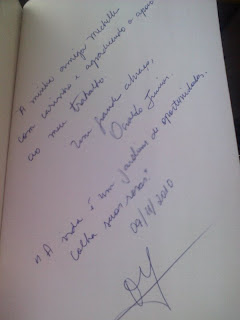 A minha amiga Michelle
com carinho e agradecendo o apoio
ao meu trabalho
Um grande abraço,
Osvaldo Junior.
"A vida é um jardim de oportunidades,
colha suas rosas."
09/11/2010